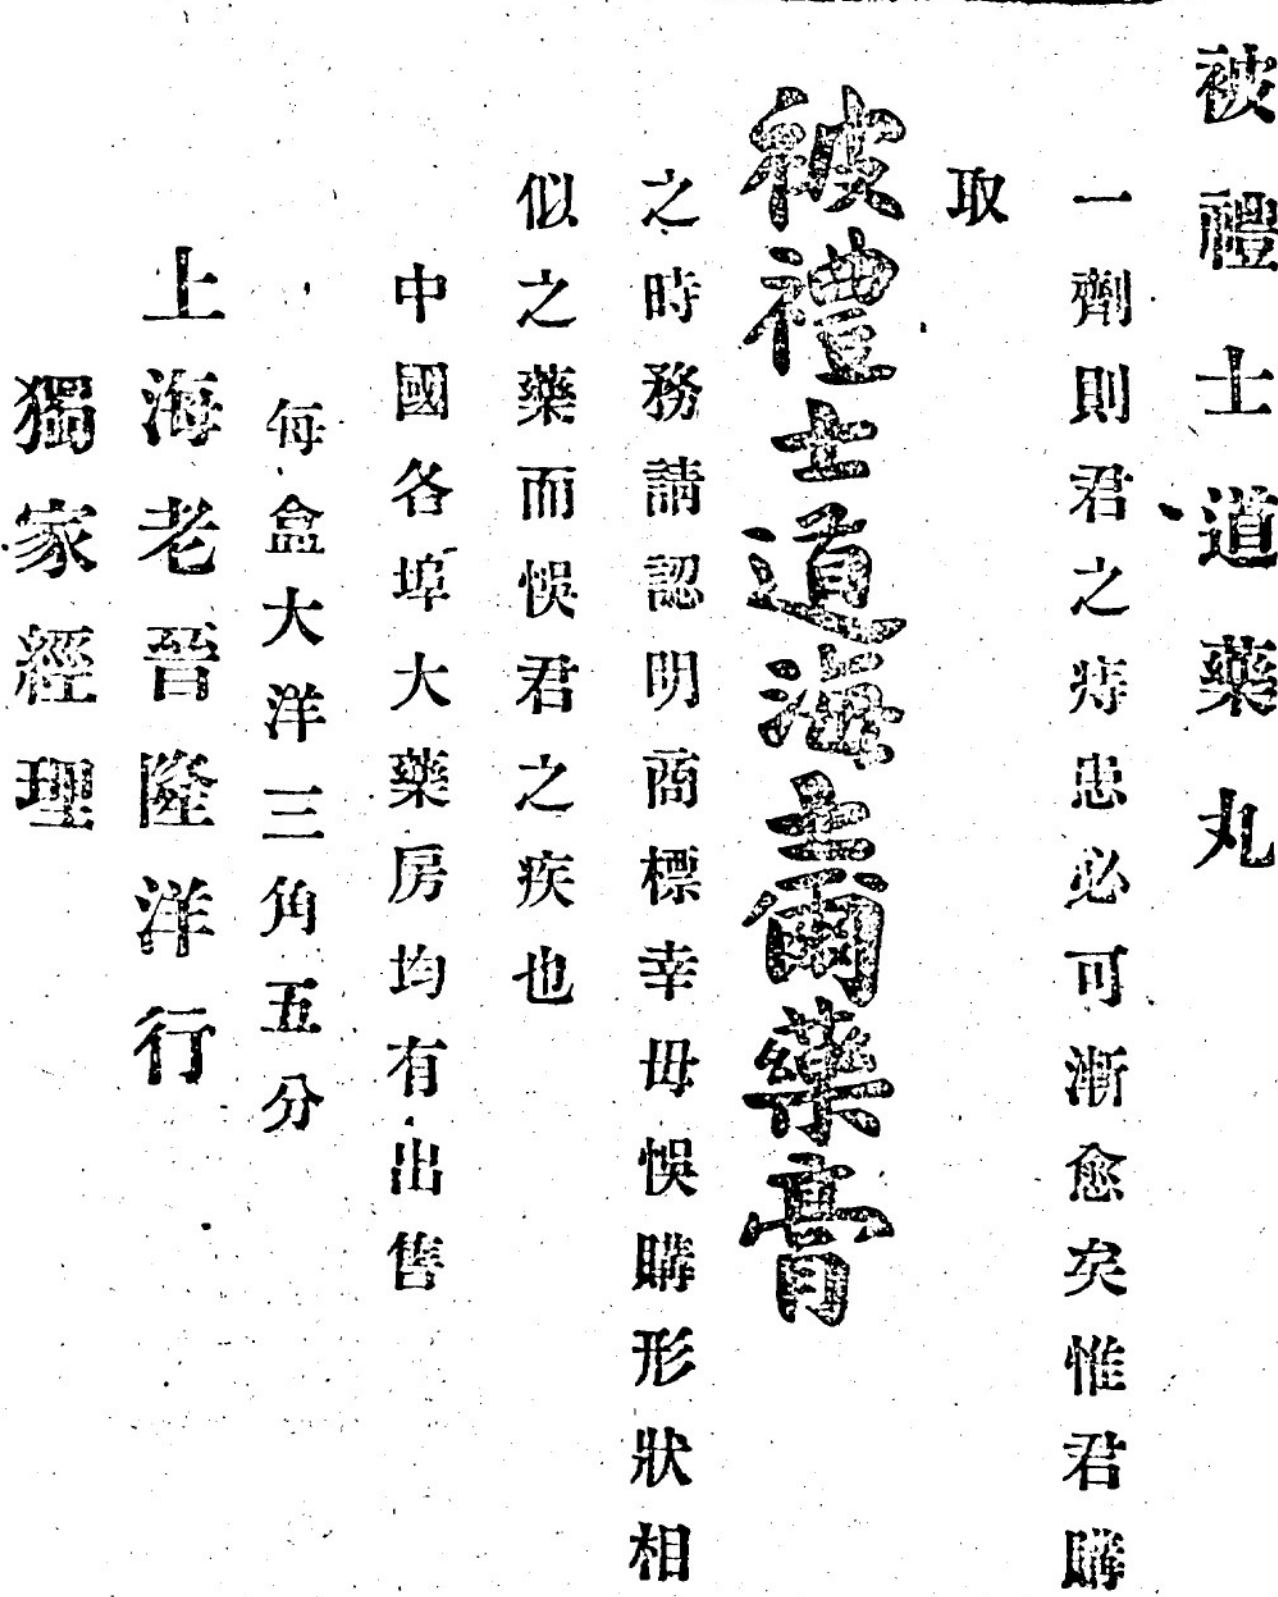 被禮士道藥丸
一劑則君之痔患必可漸愈矣惟君購
取
被禮士道海士爾藥膏
之時務請認明商標幸毋悞購形狀相
似之藥而悞君之疾也
中國各埠大藥房均有出售
每盒大洋三角五分
上海老晉隆洋行
獨家經理